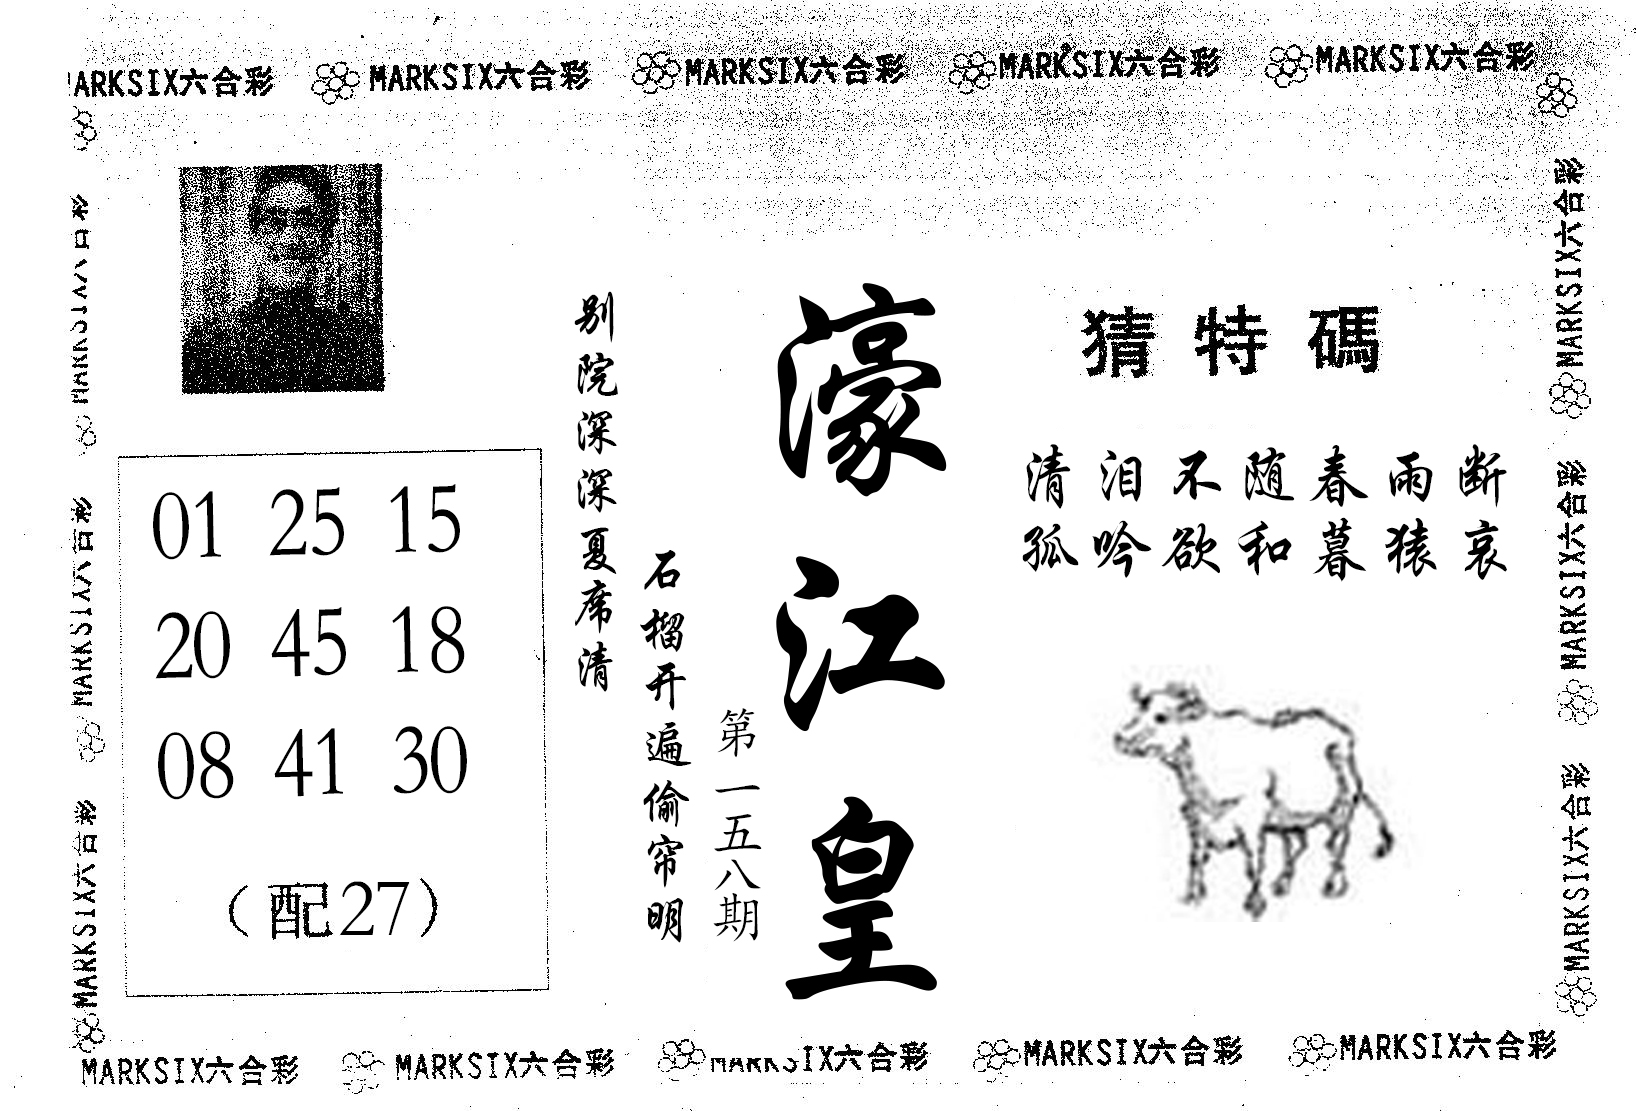 MARKSIX六合彩 MARKSIX六合彩 MARKSIX六合彩 MARKSIX六合彩
MARKSIX六合彩
MARKSIX六合彩
MARKSIX六合彩
01 25 15
20 45 18
08 41 30
（配27）
别院深深夏席清
石榴开遍偷帘明
第一五八期
濠江皇
猜特碼
清泪不随春雨断
孤吟欲和暮猿哀
MARKSIX六合彩
MARKSIX六合彩
MARKSIX六合彩
MARKSIX六合彩 MARKSIX六合彩 MARKSIX六合彩 MARKSIX六合彩 MARKSIX六合彩